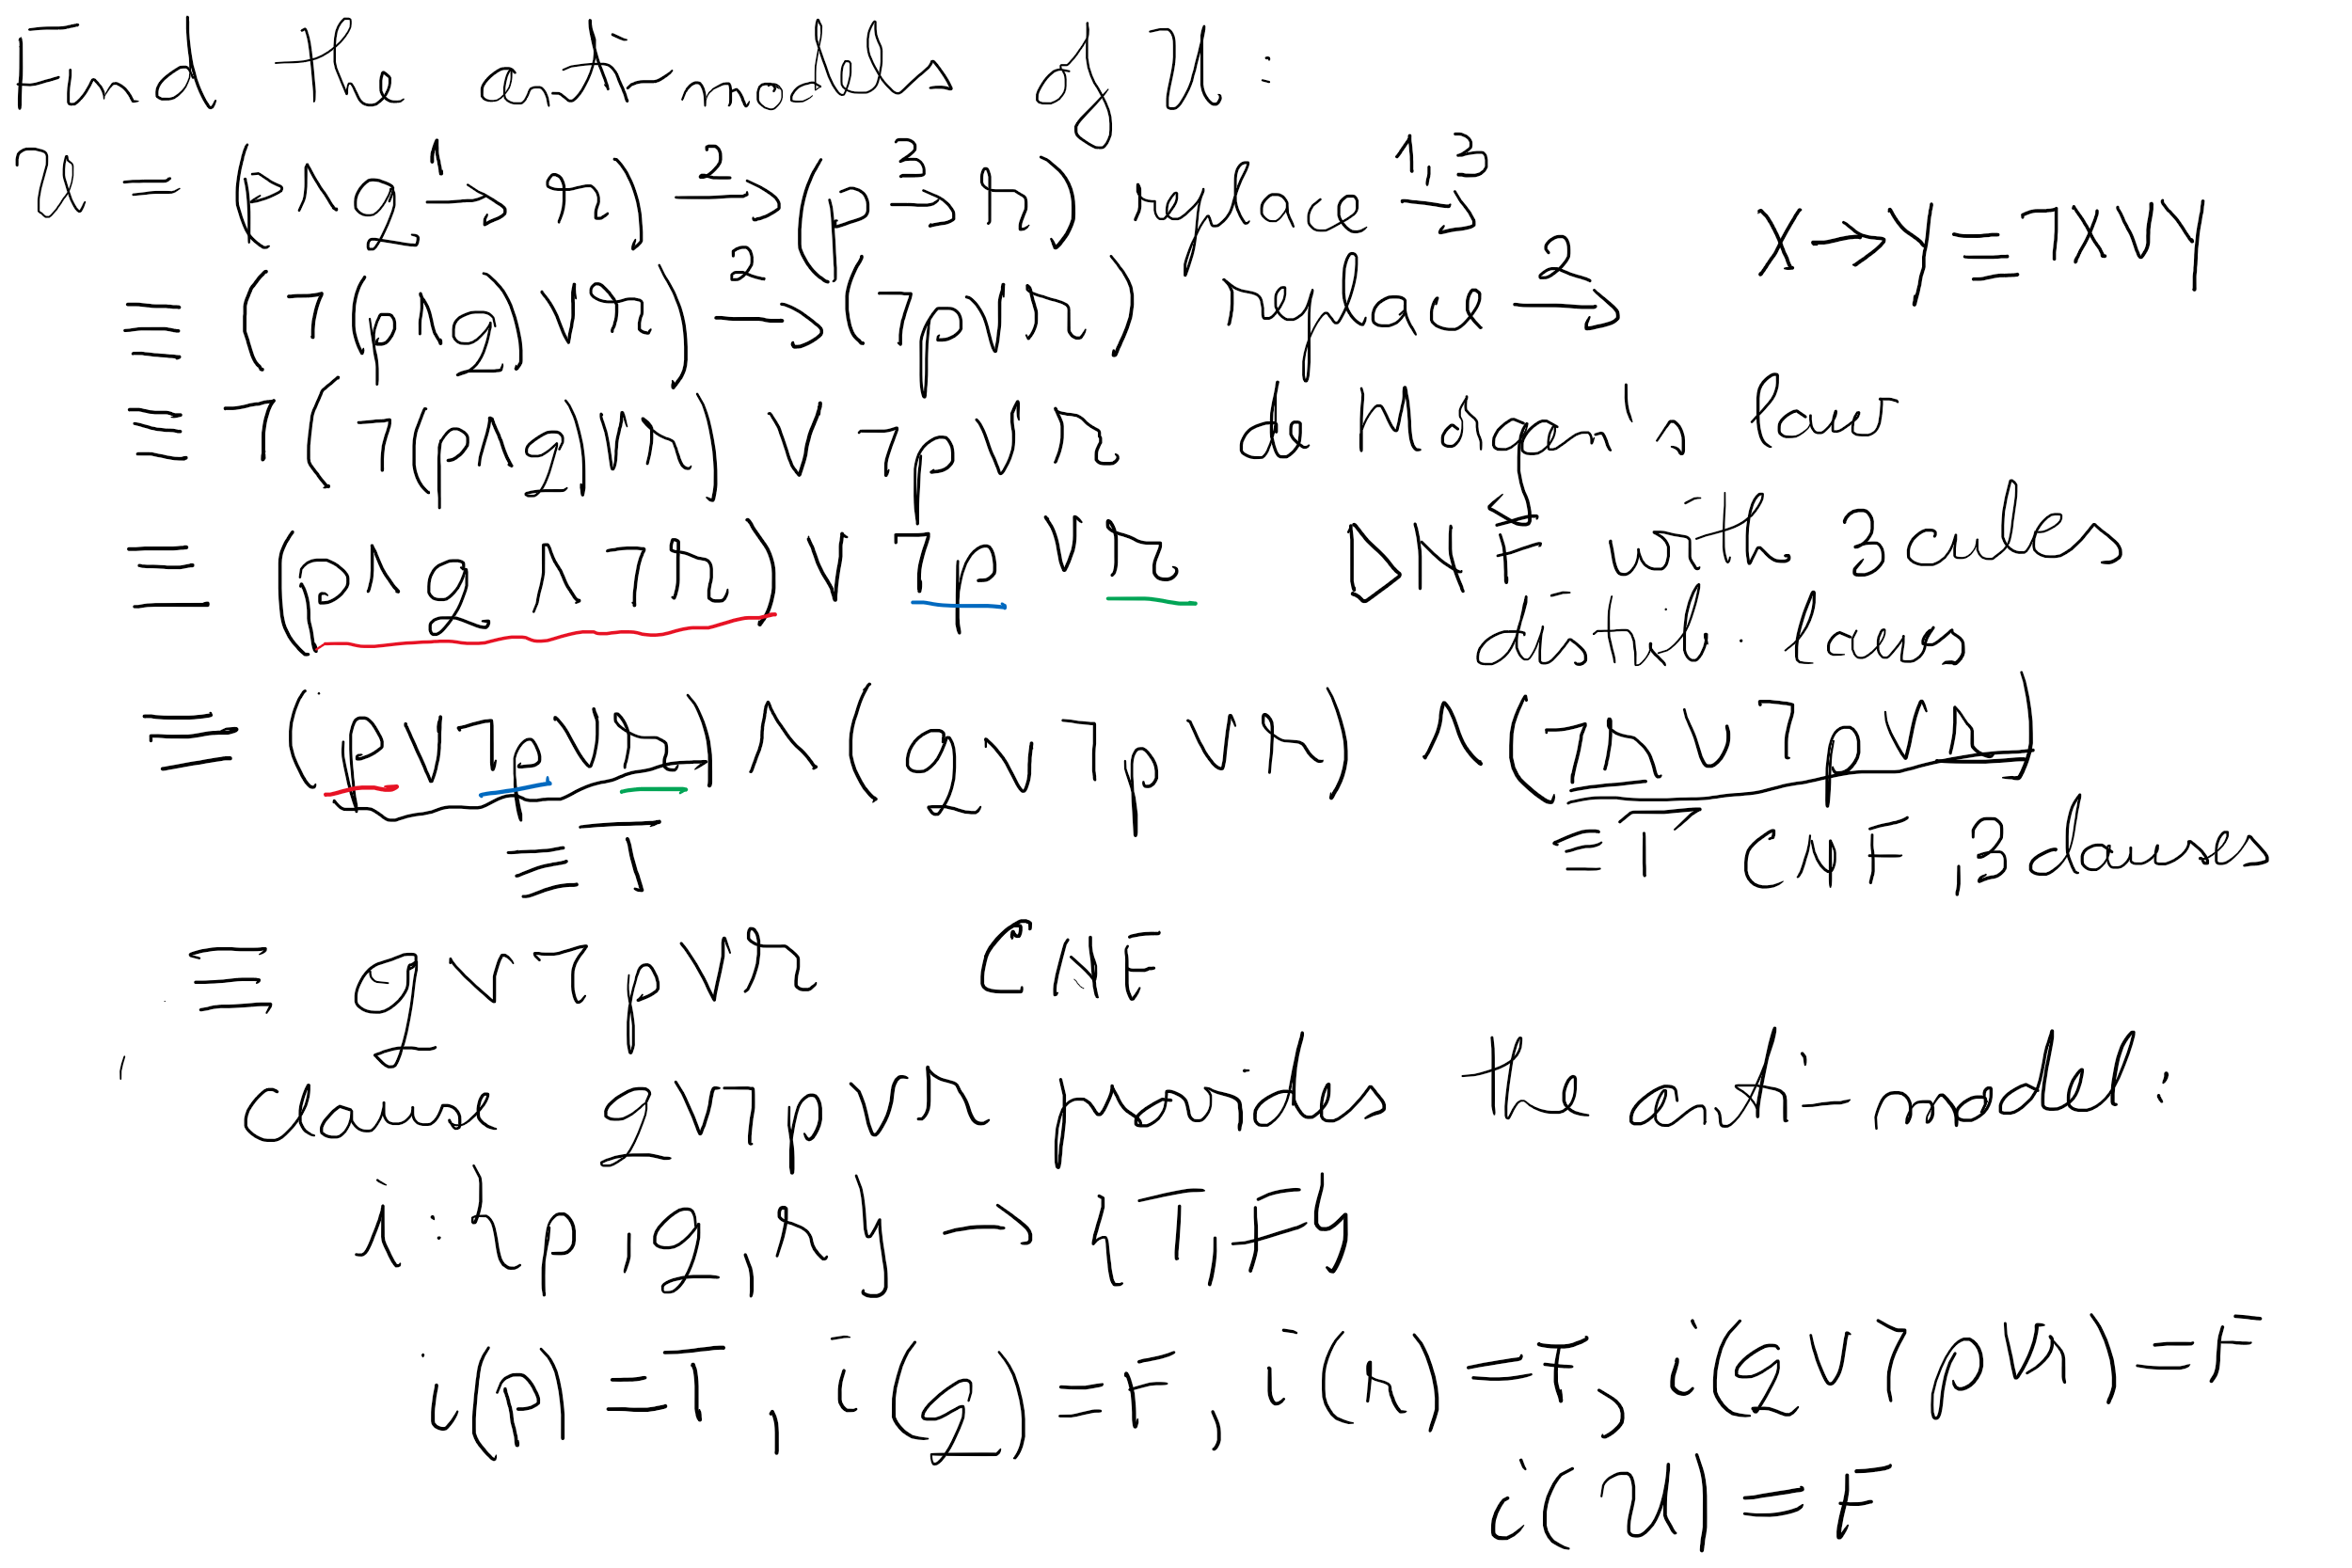 Find the anti-models of U:
U = (p∧q →¹ r) →² (p →³ r) replace →¹,³
X→Y ≡ ¬X∨Y
≡ (¬(p∧q)∨r) →² (¬p∨r) replace →²
≡ ¬(¬(p∧q)∨r) ∨ ¬p∨r de Mogan's law
≡ (p∧q∧¬r) ∨ ¬p ∨ r DNF with 3 cubes
distrib. laws
≡ (p∨¬p∨r) ∧ (q∨¬p∨r) ∧ (¬r∨¬p∨r)
≡T ≡T CNF, 3 clauses
≡ q∨¬p∨r CNF
clause q∨¬p∨r provides the anti-model:
i:{p,q,r} → {T,F}
i(p)=T, i(q)=F, i(r)=F, i(q∨¬p∨r)=F
i(U)=F